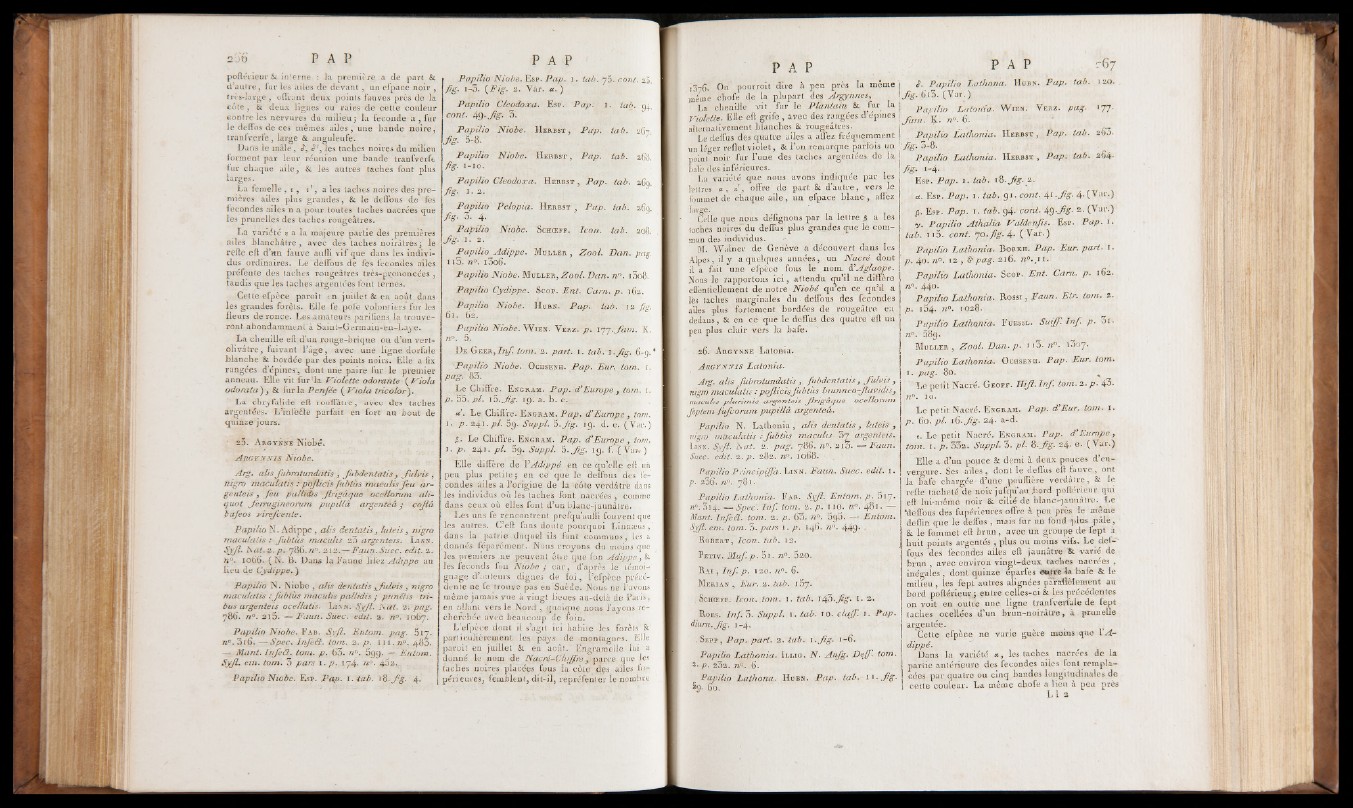 266 P A P
postérieur & interne : la première a de part &
d'autre, sur les ailes de devant, un espace noir,
très-large, offrant deux points fauves près de la
côte, & deux lignes ou raies de cette couleur
contre les nervures du milieu; la seconde a, sur
le dessus de ces mêmes ailes, une bande noire,
transverse, large & anguleuse.
Dans le mâle, les taches noires du milieu
forment par leur réunion une bande transverse
sur chaque aile, & les autres taches sont plus
larges.
La femelle, a les taches noires des pre-
mières ailes plus grandes, & le dessous de ses
secondes ailes n'a pour toutes taches nacrées que
les prunelles des taches rougeâtres.
La variété a la majeure partie des premières
ailes blanchâtre, avec des taches noirâtres; le
reste est d'un fauve aussi vif que dans les indivi-
dus ordinaires. Le dessous de ses secondes ailes
présente des taches rougeâtres très-prononcées,
tandis que les taches argentées sont ternes.
Cette espèce paroît en juillet & en août dans
les grandes forêts. Elle se pose volontiers sur les
fleurs de ronce. Les amateurs parisiens la trouve-
ront abondamment à Saint-Germain-en-Laye.
La chenille est d'un rouge-brique ou d'un vert-
olivâtre, suivant l'âge, avec une ligne dorsale
blanche & bordée par des points noirs. Elle a six
rangées d'épines, dont une paire sur le premier
anneau. Elle vit sur la Violette odorante (Viola
odorata), & sur la Pensée (Viola tricolor).
La chrysalide est roussâtre, avec des taches
argentées. L'insecte parfait en sort au bout de
quinze jours.
25. ARGYNNE Niobé.
ARGYNNIS Niobe.
Arg. alis subrotundatis, subdentatis, fulvis,
nigro maculatis : posticis subtùs maculis seu ar-
genteis, seu pallidis strigâque ocellorum ali-
quot ferrugineorum pupillâ argenteâ; costâ
baseos virescente.
Papilio N. Adippe, alis dentatis, luteis, nigro
maculatis : subtùs maculis 23 argenteis. LINN.
Syst. Nat. 2. p. 786. n°. 212. — Faun. Suec. edit. 2.
n°. 1066. (N. B. Dans la Faune lisez Adippe au
lieu de Cydippe.)
Papilio N. Niobe, alis dentatis, fulvis, nigro
maculatis : subtùs maculis pallidis; punctis tri-
bus argenteis ocellatis. LINN. Syst. Nat. 2. pag.
786. n°. 215. — Faun. Suec. edit. 2. n°. 1067.
Papilio Niobe. FAB. Syst. Entom. pag. 517.
n°. 316. — Spec. Insect. tom. 2. p. 111. n°. 483.
— Mant. Insect. tom. p. 63. n°. 599. — Entom.
Syst. em. tom. 3 pars 1. p. 174. n°. 452.
Papilio Niobe. ESP. Pap. 1. tab. 18. fig. 4.
P A P
Papilio Niobe. ESP. Pap. 1. tab. 75. cont. 25.
fig. 1-3. (Fig. 2. Var. α.)
Papilio Cleodoxa. ESP. Pap. 1. tab. 94.
cont. 49. fig. 3.
Papilio Niobe. HERBST, Pap. tab. 267.
fig. 5-8.
Papilio Niobe. HERBST, Pap. tab. 268.
fig. 1-10.
Papilio Cleodoxa. HERBST, Pap. tab. 269.
fig. 1. 2.
Papilio Pelopia. HERBST, Pap. tab. 269.
fig. 3. 4.
Papilio Niobe. SCHÆFF. Icon. tab. 208.
fig. 1. 2.
Papilio Adippe. MULLER, Zool. Dan. pag
113. n°. 1306.
Papilio Niobe. MULLER, Zool. Dan. n°. 1308
Papilio Cydippe. SCOP. Ent. Carn. p. 162.
Papilio Niobe. HUBN. Pap. tab. 12 fig.
61. 62.
Papilio Niobe. WIEN. VERZ. p. 177. fam. K.
n°. 5.
DE GEER, Ins. tom. 2. part. 1. tab. 1. fig. 6-9.
Papilio Niobe. OCHSENH. Pap. Eur. tom. 1.
pag. 83.
Le Chiffre. ENGRAM. Pap. d'Europe, tom. 1.
p. 55. pl. 15. fig. 19. a. b. c.
α'. Le Chiffre. ENGRAM. Pap. d'Europe, tom.
1. p. 241. pl. 59. Suppl. 5. fig. 19. d. e. (Var.)
β. Le Chiffre. ENGRAM. Pap. d'Europe, tom.
1. p. 241. pl. 59. Suppl. 5. fig. 19. f. (Var.)
Elle diffère de l'Adippé en ce qu'elle est un
peu plus petite; en ce que le dessous des se-
condes ailes a l'origine de la côte verdâtre dans
les individus où les taches sont nacrées, comme
dans ceux où elles sont d'un blanc-jaunâtre.
Les uns se rencontrent presqu'aussi souvent que
les autres. C'est sans doute pourquoi Linnæus,
dans la patrie duquel ils sont communs, les a
donnés séparément. Nous croyons du moins que
les premiers ne peuvent être que son Adippe, &
les seconds son Niobe; car, d'après le témoi-
gnage d'auteurs dignes de foi, l'espèce précé-
dente ne se trouve pas en Suède. Nous ne l'avons
même jamais vue à vingt lieues au-delà de Paris,
en allant vers le Nord, quoique nous l'ayons re-
cherchée avec beaucoup de soin.
L'espèce dont il s'agit ici habite les forêts &
particulièrement les pays de montagnes. Elle
paroît en juillet & en août. Engramelle lui a
donné le nom de Nacré-Chiffre, parce que les
taches noires placées sous la côte des ailes su-
périeures, semblent, dit-il, représenter le nombre
P A P
1376. On pourroit dire à peu près la même
même chose de la plupart des Argynnes.
La chenille vit sur le Plantain & sur la
Violette. Elle est grise, avec des rangées d'épines
alternativement blanches & rougeâtres.
Le dessus des quatre ailes a assez fréquemment
un léger reflet violet, & l'on remarque parfois un
point noir sur l'une des taches argentées de la
base des inférieures.
La variété que nous avons indiquée par les
lettres α, α', offre de part & d'autre, vers le
sommet de chaque aile, un espace blanc, assez
large.
Celle que nous désignons par la lettre β a les
taches noires du dessus plus grandes que le com-
mun des individus.
M. Walner de Genève a découvert dans les
Alpes, il y a quelques années, un Nacré dont
il a fait une espèce sous le nom d'Aglaope.
Nous le rapportons ici, attendu qu'il ne diffère
essentiellement de notre Niobé qu'en ce qu'il a
les taches marginales du dessous des secondes
ailes plus fortement bordées de rougeâtre en
dedans, & en ce que le dessus des quatre est un
peu plus clair vers la base.
26. ARGYNNE Latonia.
ARGYNNIS Latonia.
Arg. alis subrotundatis, subdentatis, fulvis,
nigro maculatis : posticis subtùs brunneo-flavidis,
maculis plurimis argenteis strigâque ocellorum
septem fuscorum pupillâ argenteâ.
Papilio N. Lathonia, alis dentatis, luteis,
nigro maculatis : subtùs maculis 37 argenteis.
LINN. Syst. Nat. 2. pag. 786. n°. 213. — Faun.
Suec. edit. 2. p. 282. n°. 1068.
Papilio Principissa. LINN. Faun. Suec. edit. 1.
p. 236. n°. 781.
Papilio Lathonia. FAB. Syst. Entom. p. 517.
n°. 314. — Spec. Ins. tom. 2. p. 110. n°. 481. —
Mant. Insect. tom. 2. p. 63. n°. 595. — Entom.
Syst. em. tom. 3. pars 1. p. 146. n°. 449.
ROBERT, Icon. tab. 12.
PETIV. Mus. p. 31. n°. 320.
RAI, Ins. p. 120. n°. 6.
MERIAN, Eur. 2. tab. 157.
SCHÆFF. Icon. tom. 1. tab. 143. fig. 1. 2.
ROES. Ins. 3. Suppl. 1. tab. 10. class. 1. Pap.
diurn. fig. 1-4.
SEPP, Pap. part. 2. tab. 1. fig. 1-6.
Papilio Lathonia. ILLIG. N. Ausg. Dess. tom.
2. p. 232. n°. 6.
Papilio Lathona. HUBN. Pap. tab. 11. fig.
59. 60.
P A P 267
Papilio Lathona. HUBN. Pap. tab. 120.
fig. 613. (Var.)
Papilio Latonia. WIEN. VERZ. pag. 177.
fam. K. n°. 6.
Papilio Lathonia. HERBST, Pap. tab. 263.
fig. 5-8.
Papilio Lathonia. HERBST, Pap. tab. 264.
fig. 1-4.
ESP. Pap. 1. tab. 18. fig. 2.
α. ESP. Pap. 1. tab. 91. cont. 41. fig. 4. (Var.)
β. ESP. Pap. 1. tab. 94. cont. 49. fig. 2. (Var.)
γ. Papilio Athalia Valdensis. ESP. Pap. 1.
tab. 115. cont. 70. fig. 4. (Var.)
Papilio Lathonia. BORKH. Pap. Eur. part. 1.
p. 40. n°. 12, & pag. 216. n°. 11.
Papilio Lathonia. SCOP. Ent. Carn. p. 162.
n°. 440.
Papilio Lathonia. ROSSI, Faun. Etr. tom. 2.
p. 154. n°. 1028.
Papilio Lathonia. FUESSL. Suiss. Ins. p. 31.
n°. 589.
MULLER, Zool. Dan. p. 113. n°. 1307.
Papilio Lathonia. OCHSENH. Pap. Eur. tom.
1. pag. 80.
Le petit Nacré. GEOFF. Hist. Ins. tom. 2. p. 43.
n°. 10.
Le petit Nacré. ENGRAM. Pap. d'Eur. tom. 1.
p. 60. pl. 16. fig. 24. a-d.
Le petit Nacré. ENGRAM. Pap. d'Europe,
tom. 1. p. 332. Suppl. 3. pl. 8. fig. 24. e. (Var.)
Elle a d'un pouce & demi à deux pouces d'en-
vergure. Ses ailes, dont le dessus est fauve, ont
la base chargée d'une poussière verdâtre, & le
reste tacheté de noir jusqu'au bord postérieur qui
est lui-même noir & cilié de blanc-jaunâtre. Le
dessous des supérieures offre à peu près le même
dessin que le dessus, mais sur un fond plus pâle,
& le sommet est brun, avec un groupe de sept à
huit points argentés, plus ou moins vifs. Le des-
sous des secondes ailes est jaunâtre & varié de
brun, avec environ vingt-deux taches nacrées,
inégales, dont quinze éparses entre la base & le
milieu, les sept autres alignées parallèlement au
bord postérieur; entre celles-ci & les précédentes
on voit en outre une ligne transversale de sept
taches ocellées d'un brun-noirâtre, à prunelle
argentée.
Cette espèce ne varie guère moins que l'A-
dippé.
Dans la variété α, les taches nacrées de la
partie antérieure des secondes ailes sont rempla-
cées par quatre ou cinq bandes longitudinales de
cette couleur. La même chose a lieu à peu près
L l 2